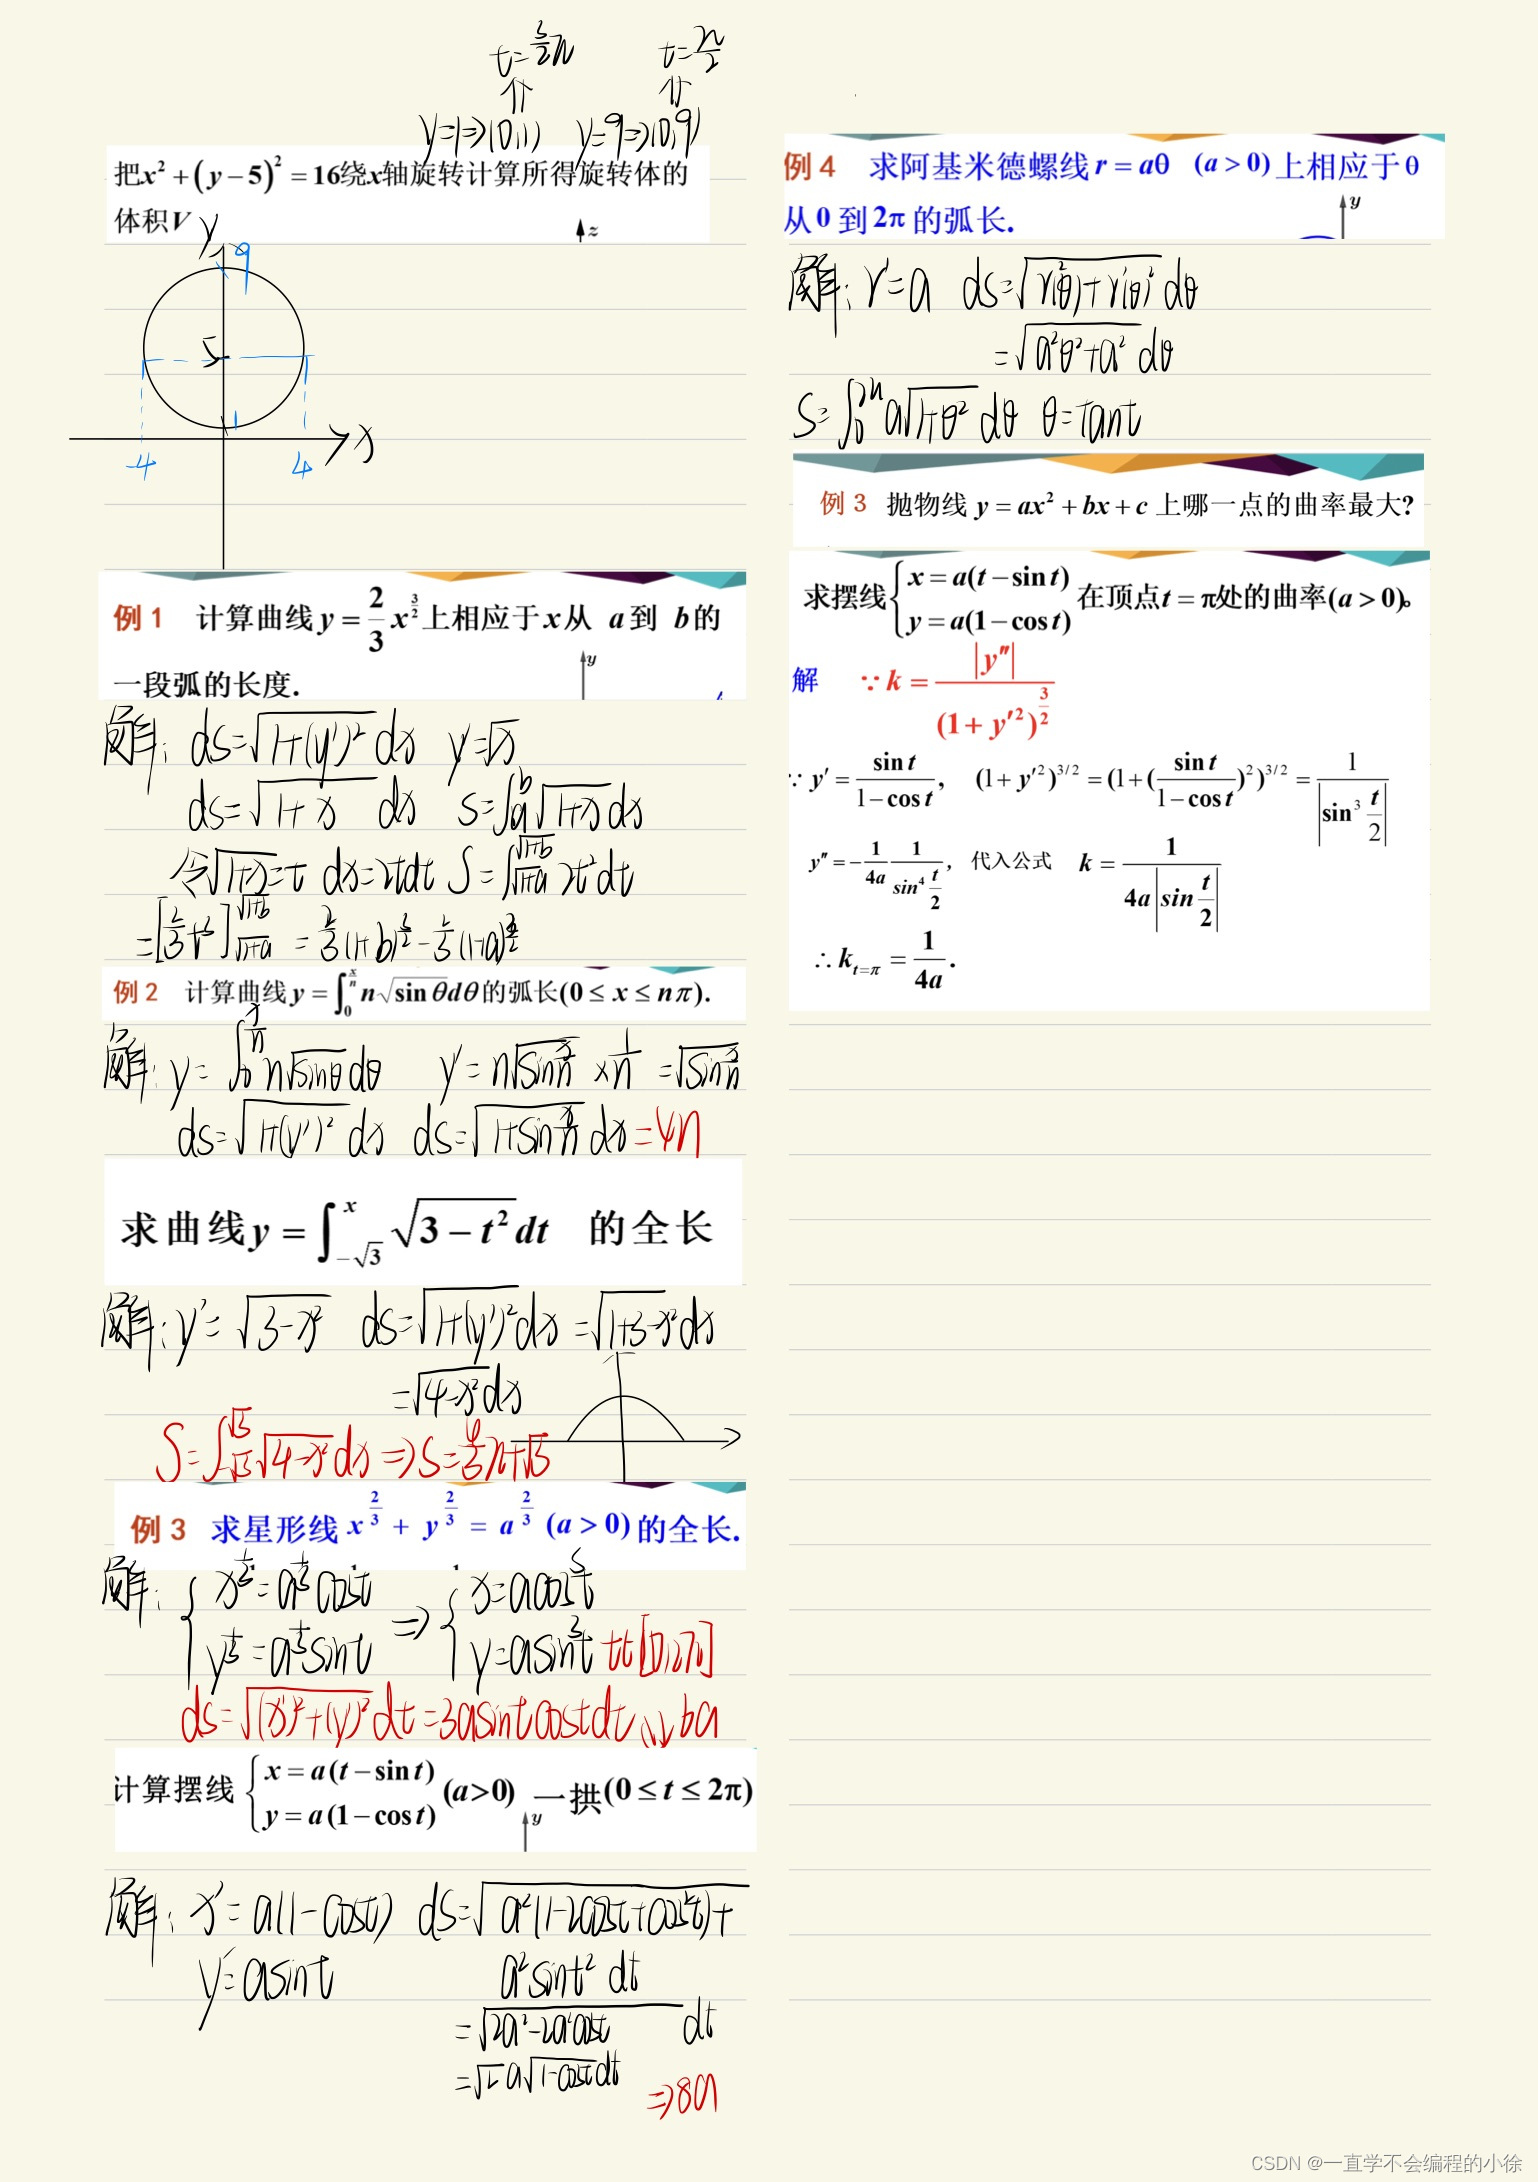 t=3/2π t=π/2
⇑ ⇑
y=1⇒(0,1) y=9⇒(0,9)
把x²+(y−5)²=16绕x轴旋转计算所得旋转体的
体积V
z
y
9
5
1
x
-4 4
例1 计算曲线y=2/3 x^(3/2)上相应于x从 a到 b的
一段弧的长度.
y
解: ds=√(1+(y')²) dx y'=√x
ds=√(1+x) dx S=∫_a^b √(1+x) dx
令√(1+x)=t dx=2tdt S=∫_√(1+a)^√(1+b) 2t²dt
=[2/3 t³]_√(1+a)^√(1+b) = 2/3(1+b)^(3/2) - 2/3(1+a)^(3/2)
例2 计算曲线y=∫_0^(x/n) n√(sinθ)dθ的弧长(0≤x≤nπ).
解: y=∫_0^(x/n) n√(sinθ)dθ y'=n√(sin x/n) × 1/n =√(sin x/n)
ds=√(1+(y')²) dx ds=√(1+sin x/n) dx=4n
求曲线y=∫_(−√3)^x √(3−t²)dt 的全长
解: y'=√(3-x²) ds=√(1+(y')²)dx =√(1+3-x²)dx
=√(4-x²)dx
S=∫_(-√3)^(√3) √(4-x²)dx ⇒S=4/3π+√3
例3 求星形线 x^(2/3) + y^(2/3) = a^(2/3) (a>0)的全长.
解: { x^(1/3)=a^(1/3)cost ⇒ { x=acos³t
y^(1/3)=a^(1/3)sint y=asin³t t∈[0,2π]
ds=√((x')²+(y')²) dt=3asintcostdt ⇒6a
计算摆线 { x=a(t−sint) (a>0) 一拱(0≤t≤2π)
y=a(1−cost)
y
解: x'=a(1-cost) ds=√(a²(1-2cost+cos²t)+
y'=asint a²sint² dt
=√(2a²-2a²cost) dt
=√2 a√(1-cost)dt
⇒8a
例4 求阿基米德螺线r=aθ (a>0)上相应于θ
从0到2π的弧长.
y
解: r'=a ds=√(r²(θ)+r'(θ)²) dθ
=√(a²θ²+a²) dθ
S=∫_0^2π a√(1+θ²) dθ θ=tant
例3 抛物线 y=ax²+bx+c 上哪一点的曲率最大?
求摆线{ x=a(t−sint) 在顶点t=π处的曲率(a>0)。
y=a(1−cost)
解 ∵k=|y″|/(1+y′²)^(3/2)
∵y′=sint/(1−cost), (1+y′²)^(3/2)=(1+(sint/(1−cost))²)^(3/2)=1/|sin³ t/2|
y″=−1/4a 1/(sin⁴ t/2), 代入公式 k=1/(4a|sin t/2|)
∴k_(t=π)=1/4a.
CSDN @一直学不会编程的小徐